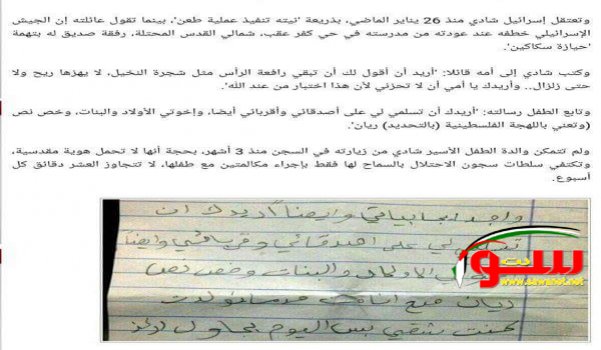 وتعتقل إسرائيل شادي منذ 26 يناير الماضي، بذريعة 'نيته تنفيذ عملية طعن'، بينما تقول عائلته إن الجيش
الإسرائيلي خطفه عند عودته من مدرسته في حي كفر عقب، شمالي القدس المحتلة، رفقة صديق له بتهمة
'حيازة سكاكين'.
وكتب شادي إلى أمه قائلا: 'أريد أن أقول لك أن تبقي رافعة الرأس مثل شجرة النخيل، لا يهزها ريح ولا
حتى زلزال.. وأريدك يا أمي أن لا تحزني لأن هذا اختبار من عند الله'.
وتابع الطفل رسالته: 'أريدك أن تسلمي لي على أصدقائي وأقربائي أيضا، وإخوتي الأولاد والبنات، وخص نص
(وتعني باللهجة الفلسطينية (بالتحديد) ريان'.
ولم تتمكن والدة الطفل الأسير شادي من زيارته في السجن منذ 3 أشهر، بحجة أنها لا تحمل هوية مقدسية،
وتكتفي سلطات سجون الاحتلال بالسماح لها فقط بإجراء مكالمتين مع طفلها، لا تتجاوز العشر دقائق كل
أسبوع.
وايضاً اريدك ان
لي على اصدقائي وقربائي وايضا
الاولاد والبنات وخص نص
ريان
كنت بتقي بس اليوم بحاول
سوا
نت
www.sawanet.net